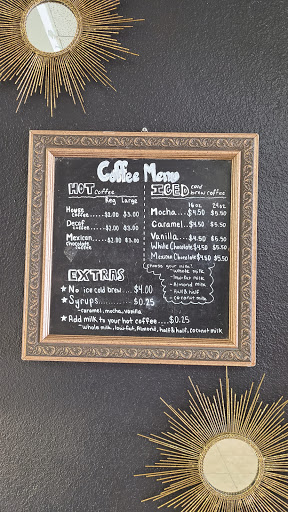 Coffee Menu
HOT coffee
Reg. Large
House coffee.....$2.00 $3.00
Decaf coffee.....$2.00 $3.00
Mexican chocolate coffee.....$2.00 $3.00
ICED cold brew coffee
16oz 24oz
Mocha....$4.50 $5.50
Caramel..$4.50 $5.50
Vanilla....$4.50 $5.50
White Chocolate $4.50 $5.50
Mexican Chocolate $4.50 $5.50
Choose your milk:
-whole milk
-lowfat milk
-Almond milk
-half & half
-coconut milk
EXTRAS
★ No ice cold brew....$4.00
★ Syrups.........$0.25
-caramel, mocha, vanilla
★ Add milk to your hot coffee....$0.25
-whole milk, lowfat, Almond, half & half, coconut milk